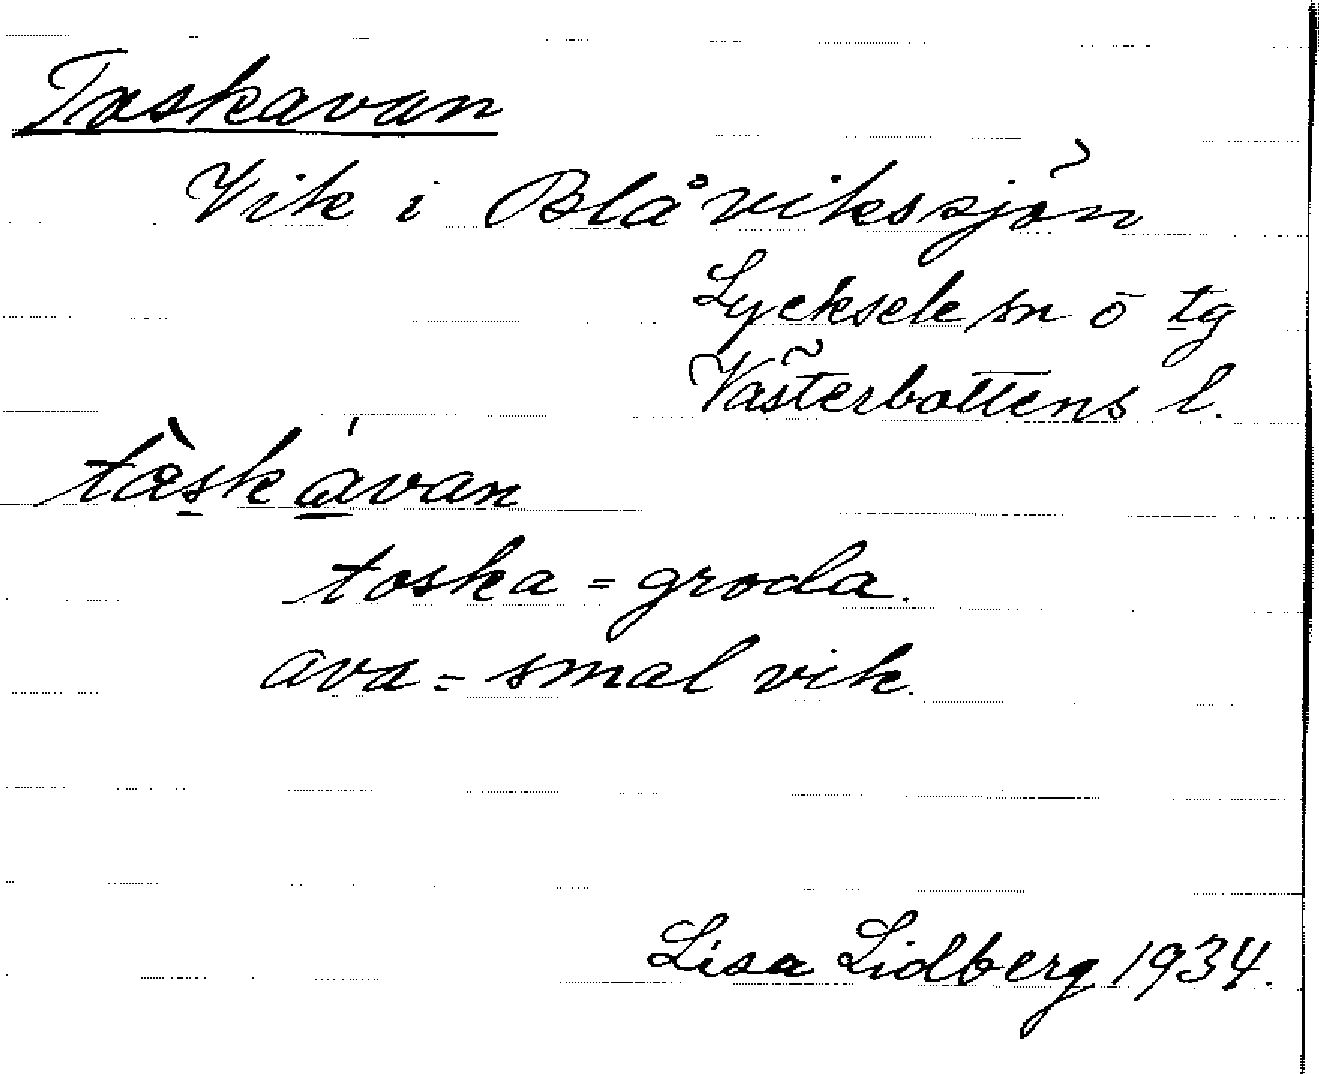 Toskavan
Vik i Blåvikssjön
Lycksele sn o tg
Västerbottens l.
tòskávan
toska = groda.
ava = smal vik.
Lisa Lidberg 1934.